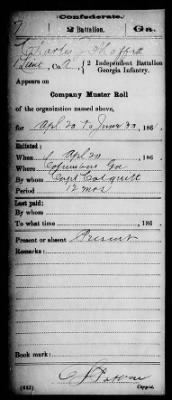 Confederate.
2 Battalion. Ga.
Charles Moffett
Co. A, 2 Independent Battalion
Georgia Infantry.
Appears on
Company Muster Roll
of the organization named above,
for Apl 20 to June 30, 186 .
Enlisted:
When Apl 20, 186 .
Where Columbus Ga
By whom Capt Colquitt
Period 12 mos
Last paid:
By whom
To what time , 186 .
Present or absent Present
Remarks:
Book mark:
(642) Copyist.